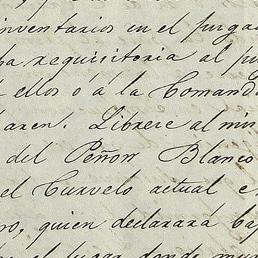 inventarios en el juzga
requisitoria al ju
ellos ó á la Comand
Librese al mis
del Peñon Blanco
el Curvelo actual e
ro, quien declarará baj
el lugar donde mu